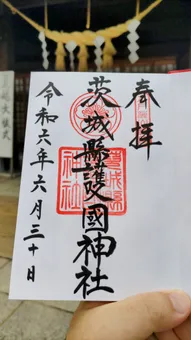 奉拝
茨城縣護國神社
令和六年六月三十日